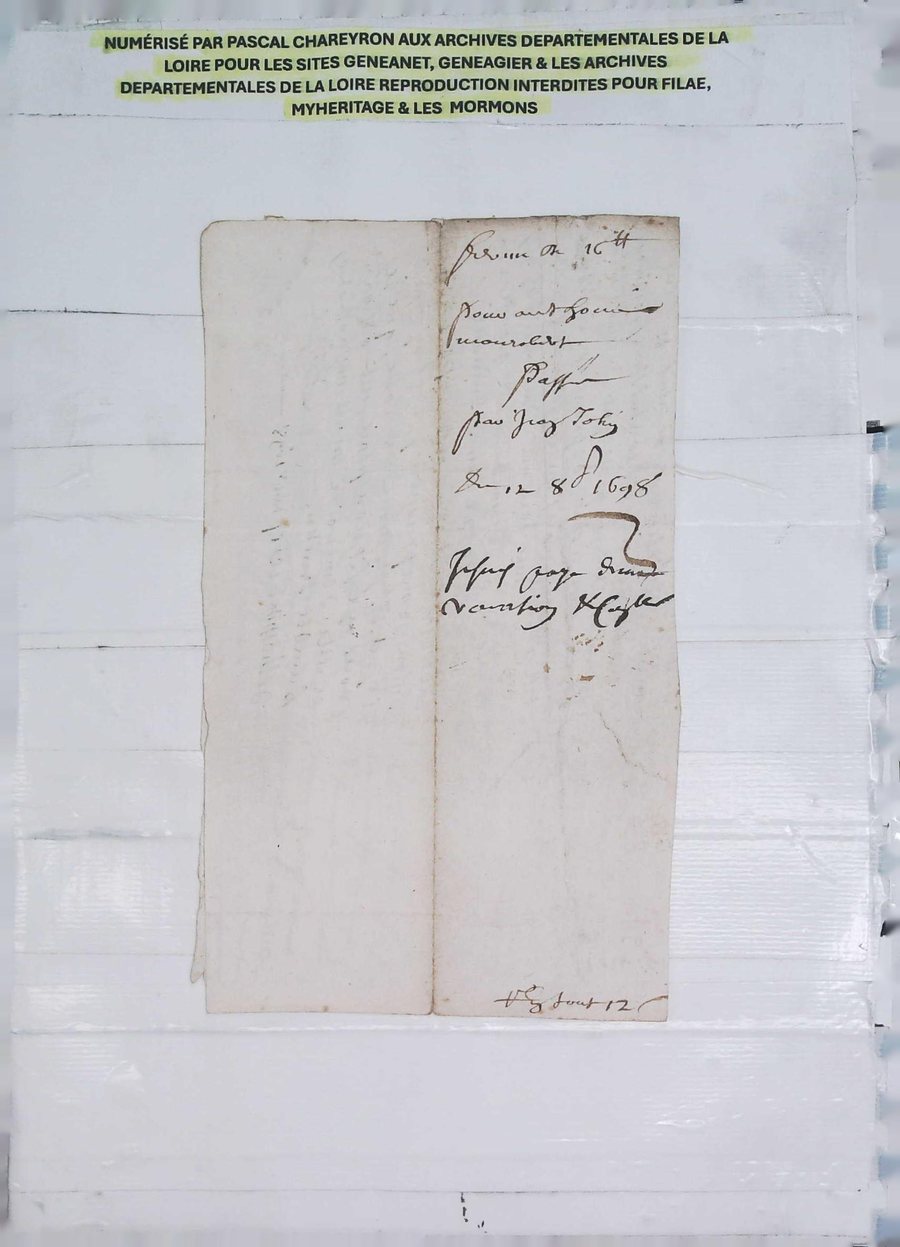 NUMÉRISÉ PAR PASCAL CHAREYRON AUX ARCHIVES DEPARTEMENTALES DE LA
LOIRE POUR LES SITES GENEANET, GENEAGIER & LES ARCHIVES
DEPARTEMENTALES DE LA LOIRE REPRODUCTION INTERDITES POUR FILAE,
MYHERITAGE & LES MORMONS
de 16tt
pour anthoine
Passé
par
Du 12 8b 1698
Je suis payé de ma
vacation &
tout 12